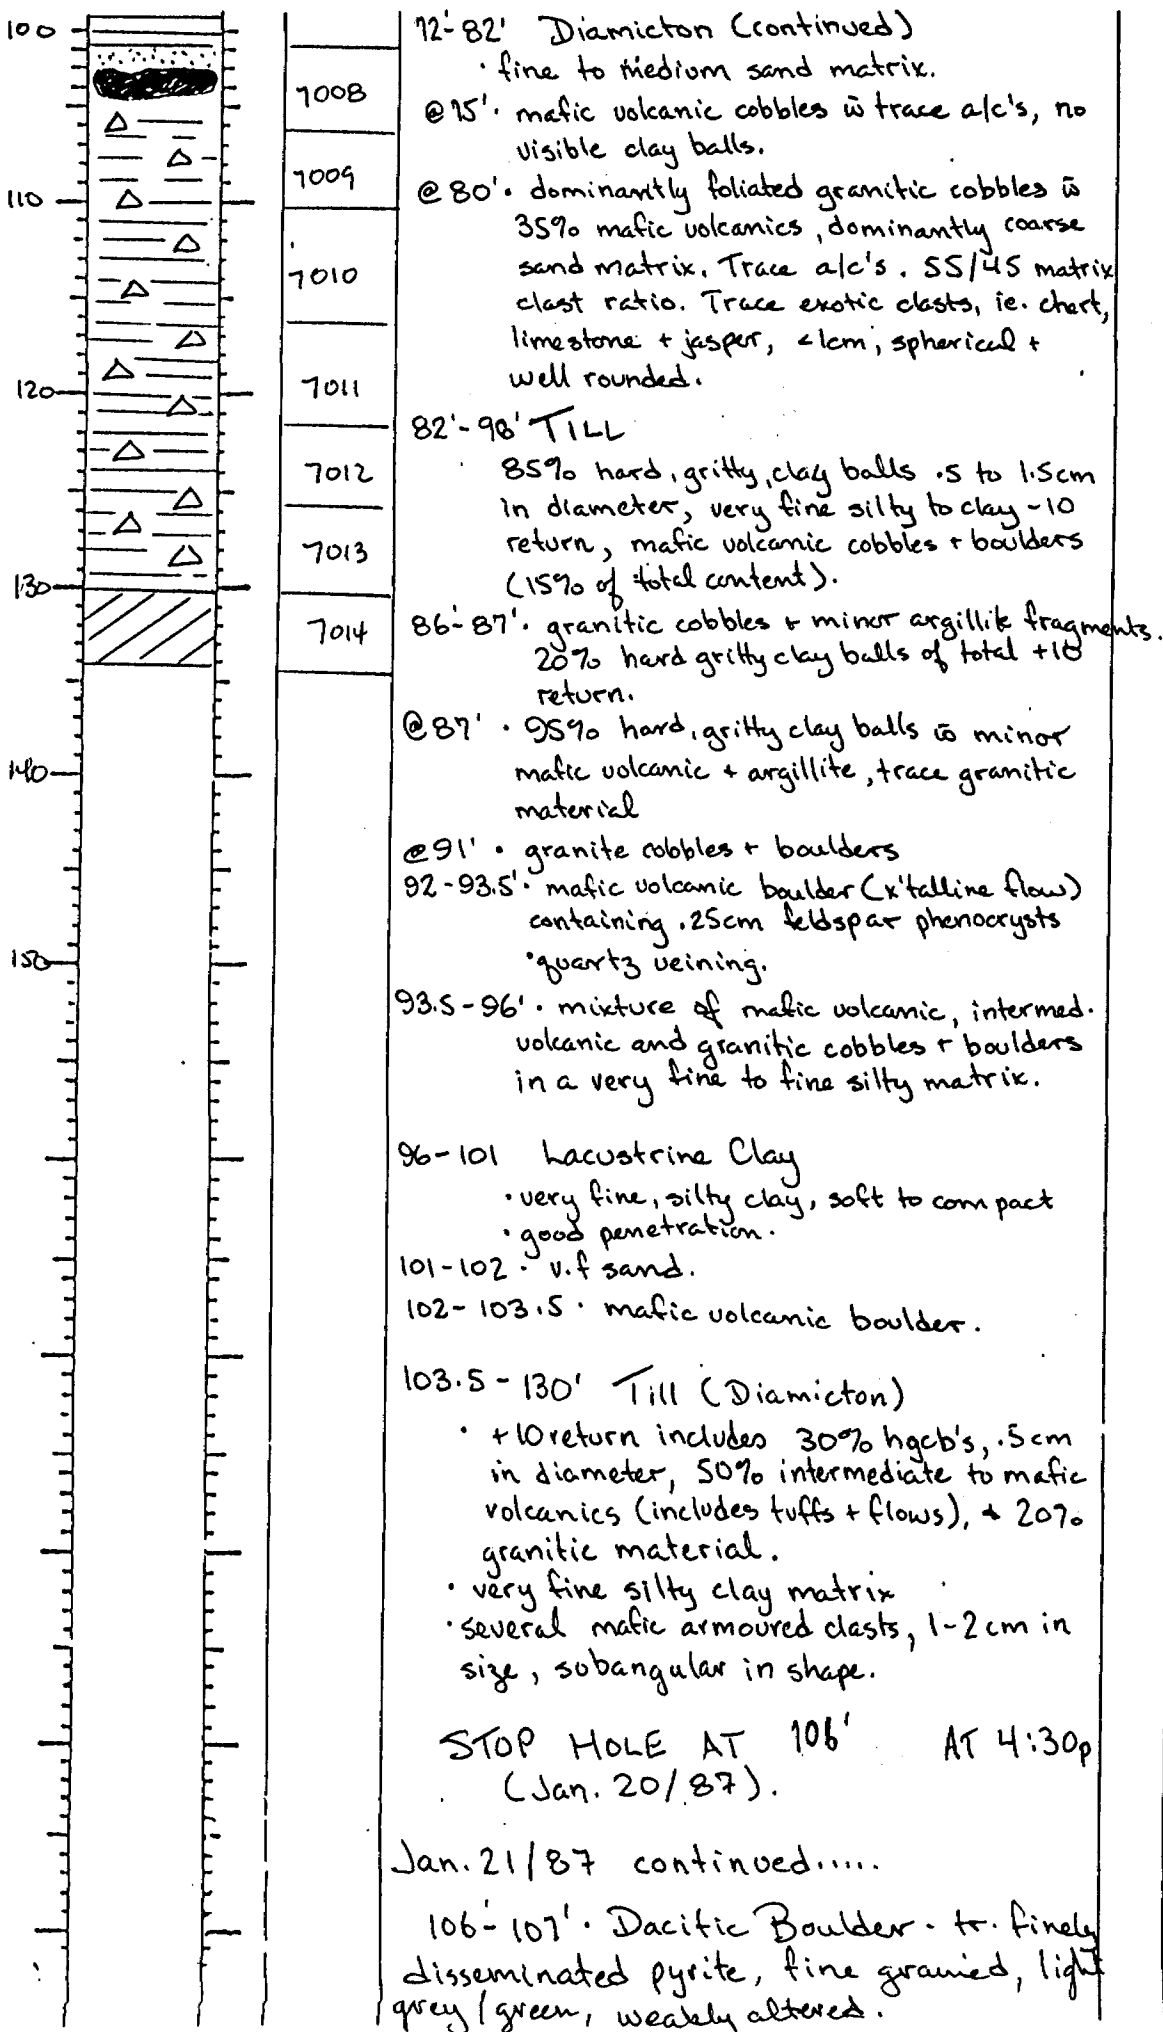 100
110
120
130
140
150
7008
7009
7010
7011
7012
7013
7014
72'-82' Diamicton (continued)
· fine to medium sand matrix.
@75' · mafic volcanic cobbles w̄ trace a/c's, no
visible clay balls.
@80' · dominantly foliated granitic cobbles w̄
35% mafic volcanics, dominantly coarse
sand matrix. Trace a/c's. 55/45 matrix
clast ratio. Trace exotic clasts, ie. chert,
limestone + jasper, <1cm, spherical +
well rounded.
82'-98' TILL
85% hard, gritty, clay balls .5 to 1.5cm
in diameter, very fine silty to clay -10
return, mafic volcanic cobbles + boulders
(15% of total content).
86'-87' · granitic cobbles + minor argillite fragments.
20% hard gritty clay balls of total +10
return.
@87' · 95% hard, gritty clay balls w̄ minor
mafic volcanic + argillite, trace granitic
material
@91' · granite cobbles + boulders
92-93.5' · mafic volcanic boulder (x'talline flow)
containing .25cm feldspar phenocrysts
· quartz veining.
93.5-96' · mixture of mafic volcanic, intermed.
volcanic and granitic cobbles + boulders
in a very fine to fine silty matrix.
96-101 Lacustrine Clay
· very fine, silty clay, soft to compact
· good penetration.
101-102 · v.f sand.
102-103.5 · mafic volcanic boulder.
103.5-130' Till (Diamicton)
· +10 return includes 30% hgcb's, .5cm
in diameter, 50% intermediate to mafic
volcanics (includes tuffs + flows), + 20%
granitic material.
· very fine silty clay matrix
· several mafic armoured clasts, 1-2cm in
size, subangular in shape.
STOP HOLE AT 106' AT 4:30p
(Jan. 20/87).
Jan. 21/87 continued.....
106'-107' · Dacitic Boulder - tr. finely
disseminated pyrite, fine grained, light
grey/green, weakly altered.